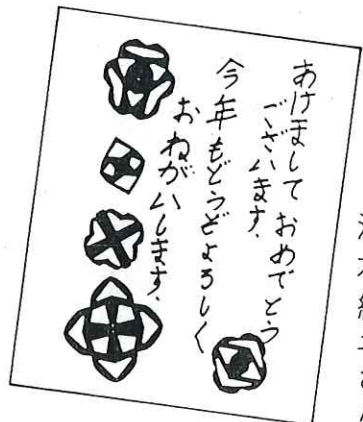 あけまして おめでとう
ございます。
今年もどうぞよろしく
おねがいします。